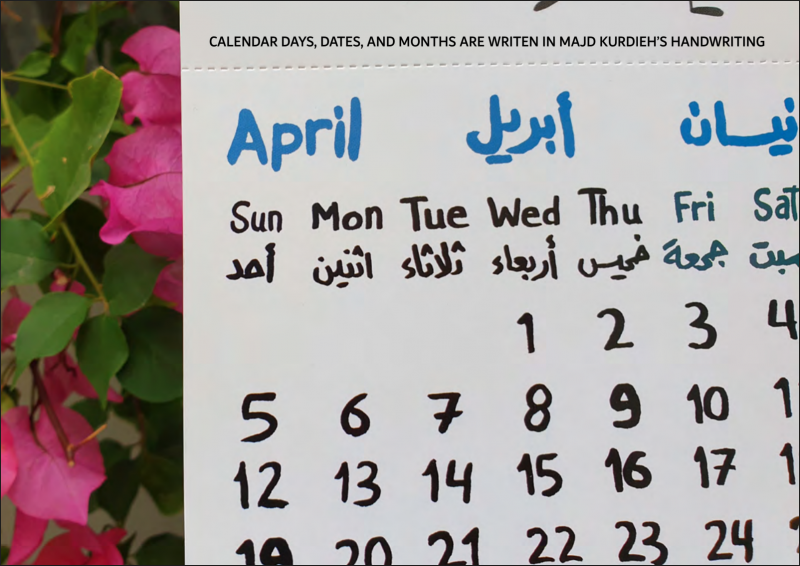 CALENDAR DAYS, DATES, AND MONTHS ARE WRITEN IN MAJD KURDIEH'S HANDWRITING
April أبريل نيسان
Sun Mon Tue Wed Thu Fri Sat
أحد اثنين ثلاثاء أربعاء خميس جمعة سبت
1 2 3 4
5 6 7 8 9 10
12 13 14 15 16 17
19 20 21 22 23 24